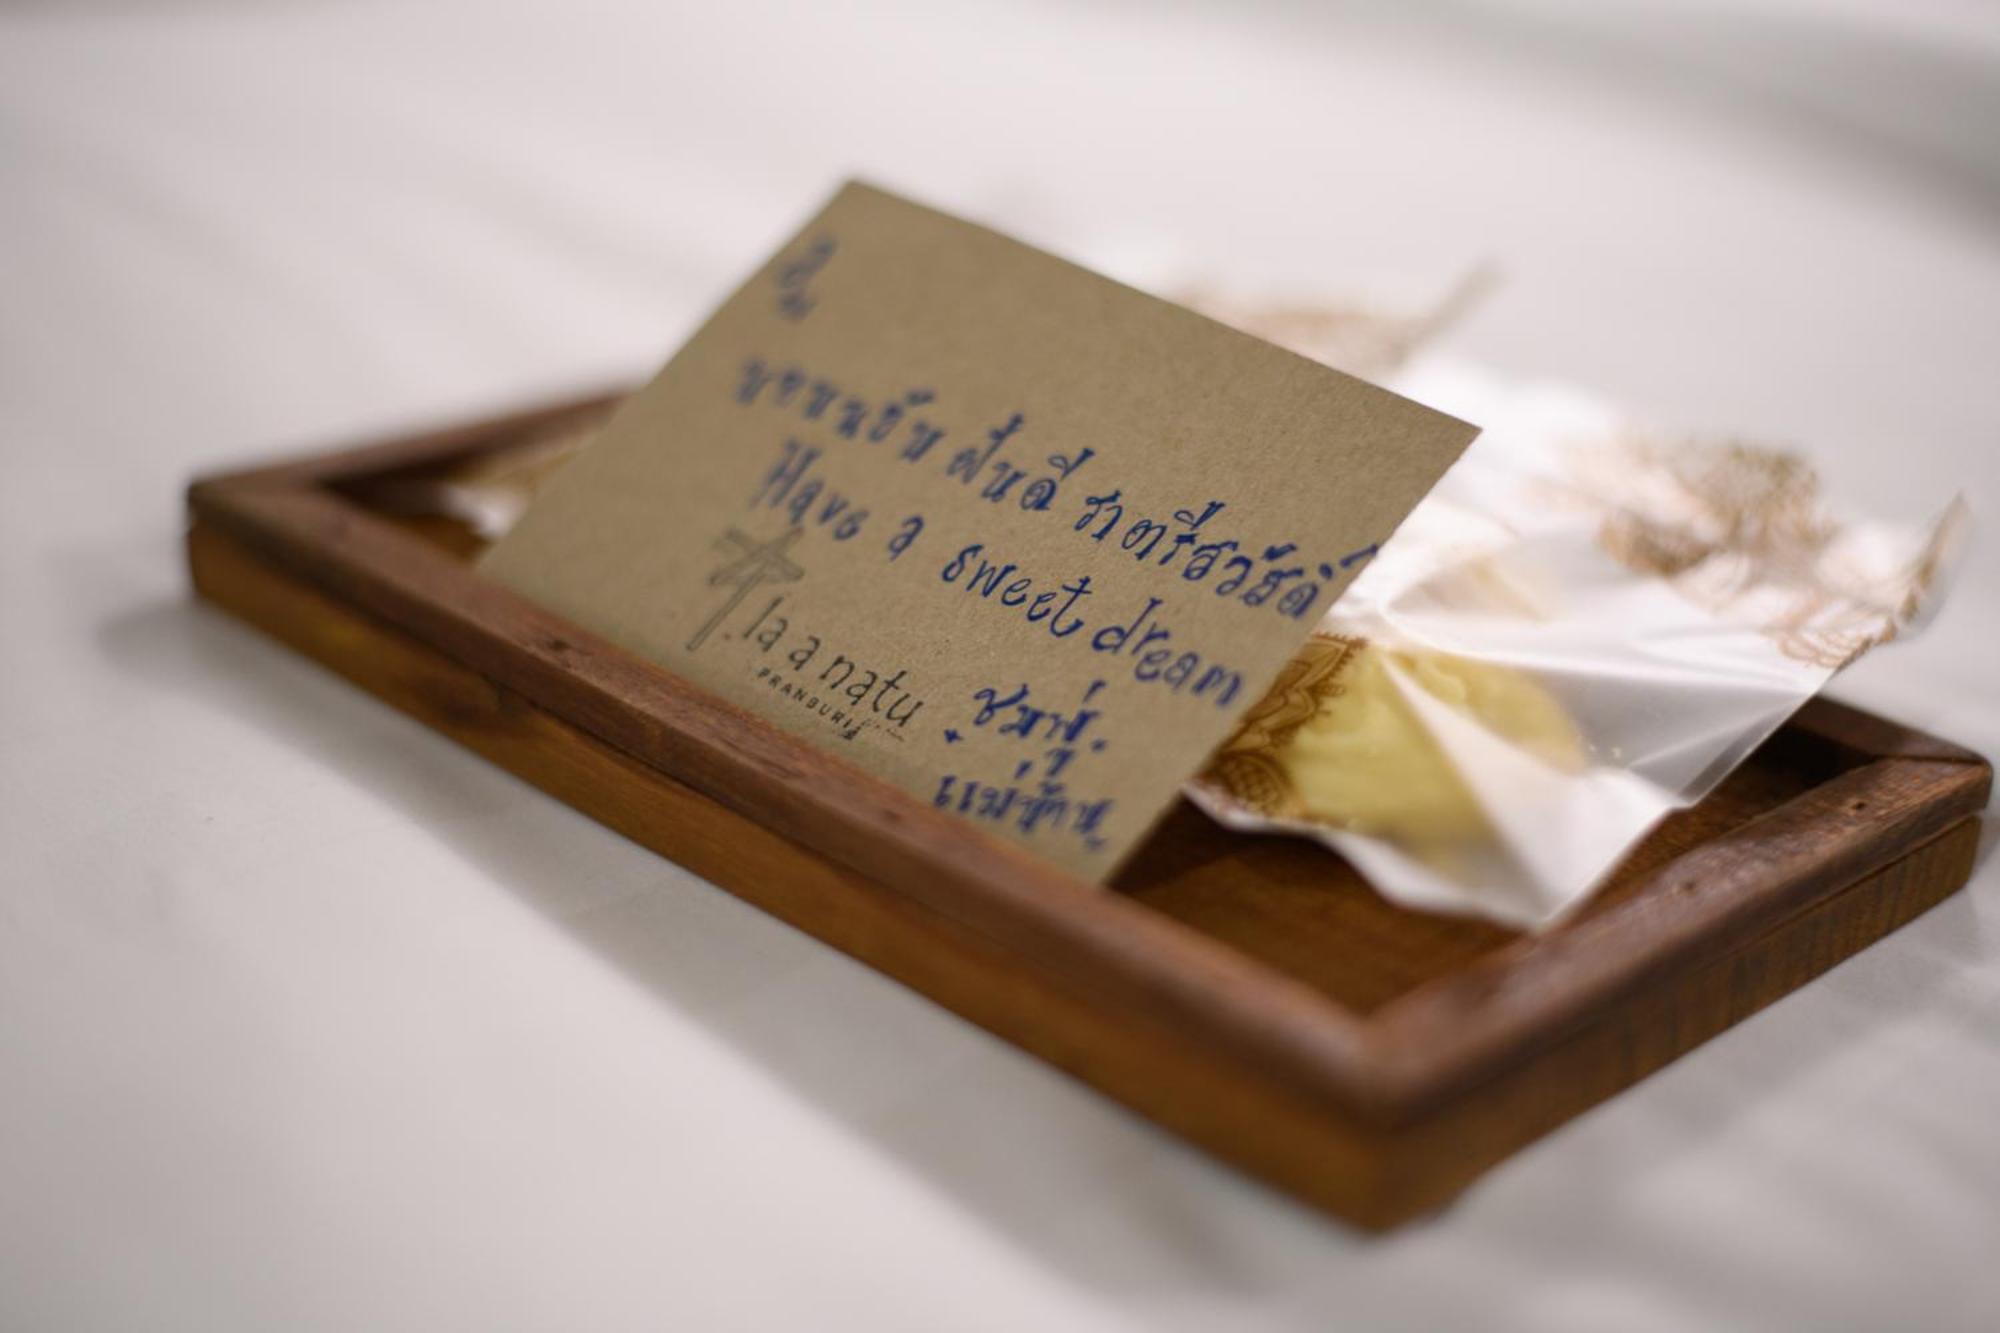 นอนฝัน ฝันดี ราตรีสวัสดิ์
Have a sweet dream
la a natu
PRANBURI
ชมพู่
แม่บ้าน